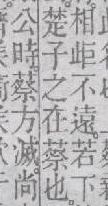 相距不遠若下
楚子之在蔡也
公時蔡方滅尚